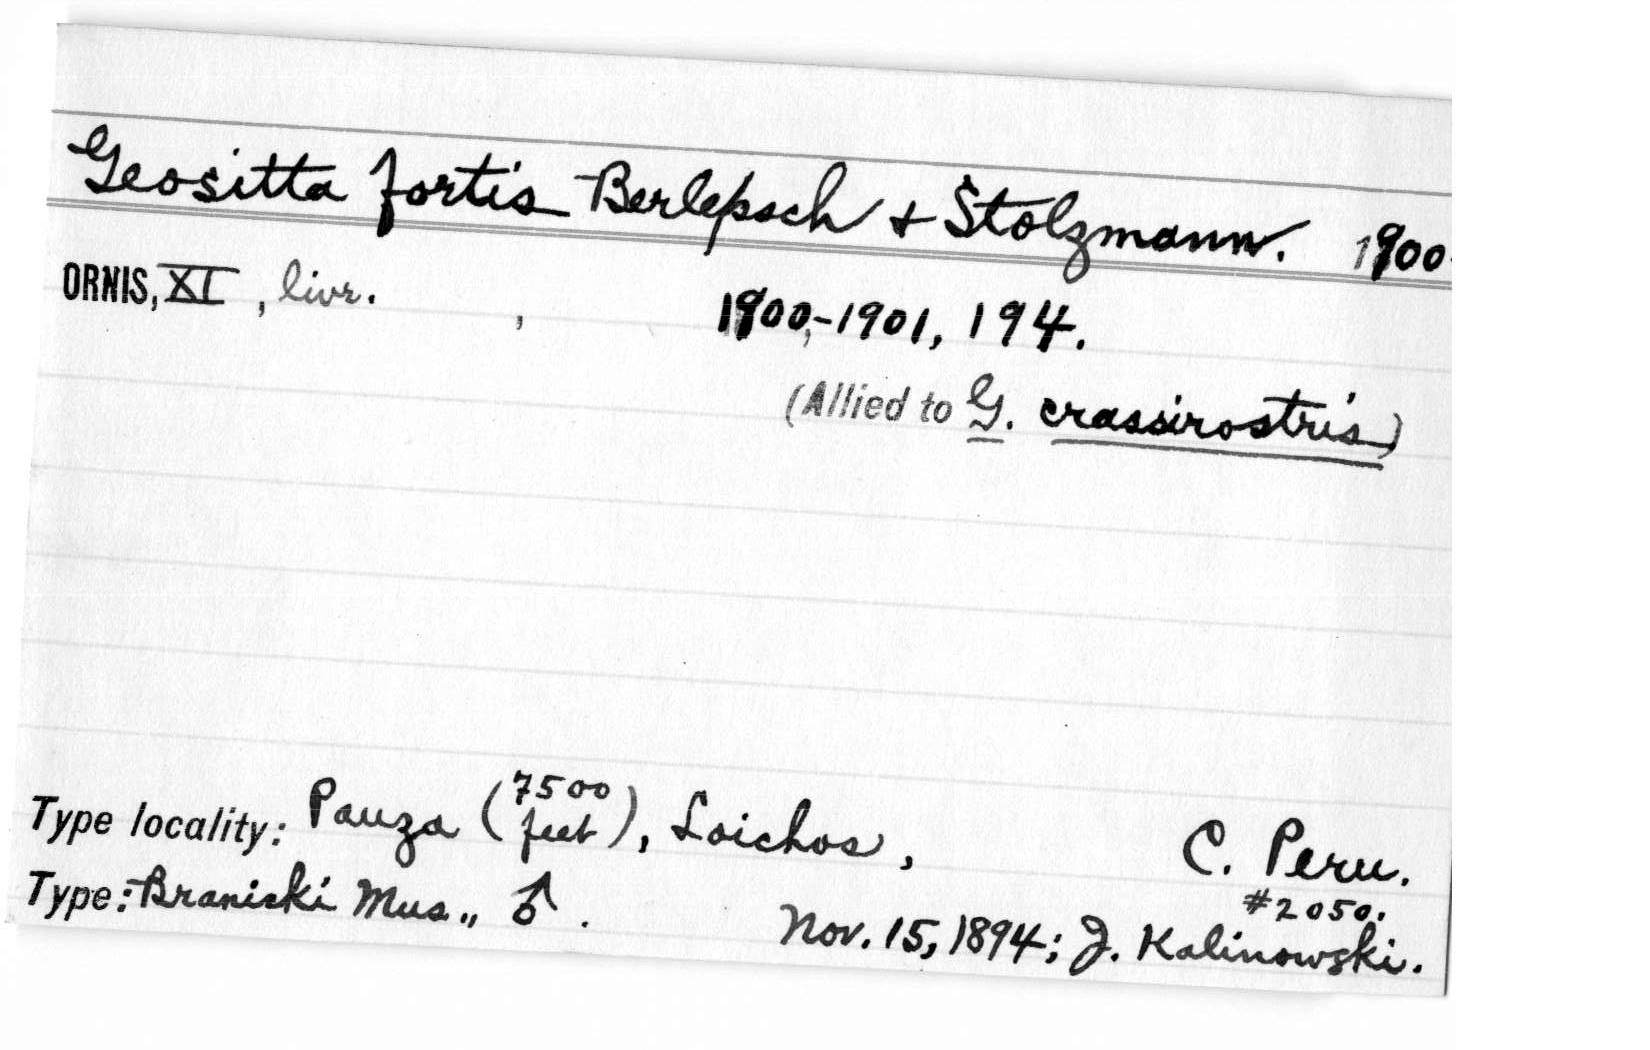 Geositta fortis Berlepsch + Stolzmann. 1900.
ORNIS, XI, livr. , 1900,-1901, 194.
(Allied to G. crassirostris)
Type locality: Pauza (7500 feet), Loichos, C. Peru.
Type: Branicki Mus., ♂. #2050.
Nov. 15, 1894; J. Kalinowski.